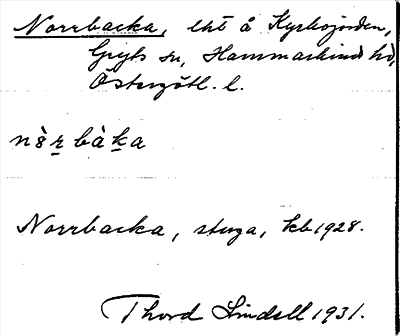 Norrbacka, lht å Kyrkojorden,
Gryts sn, Hammarkinds hd,
Östergötl. l.
nò̀r̲bàk̲a
Norrbacka, stuga, kb 1928.
Thord Lindell 1931.